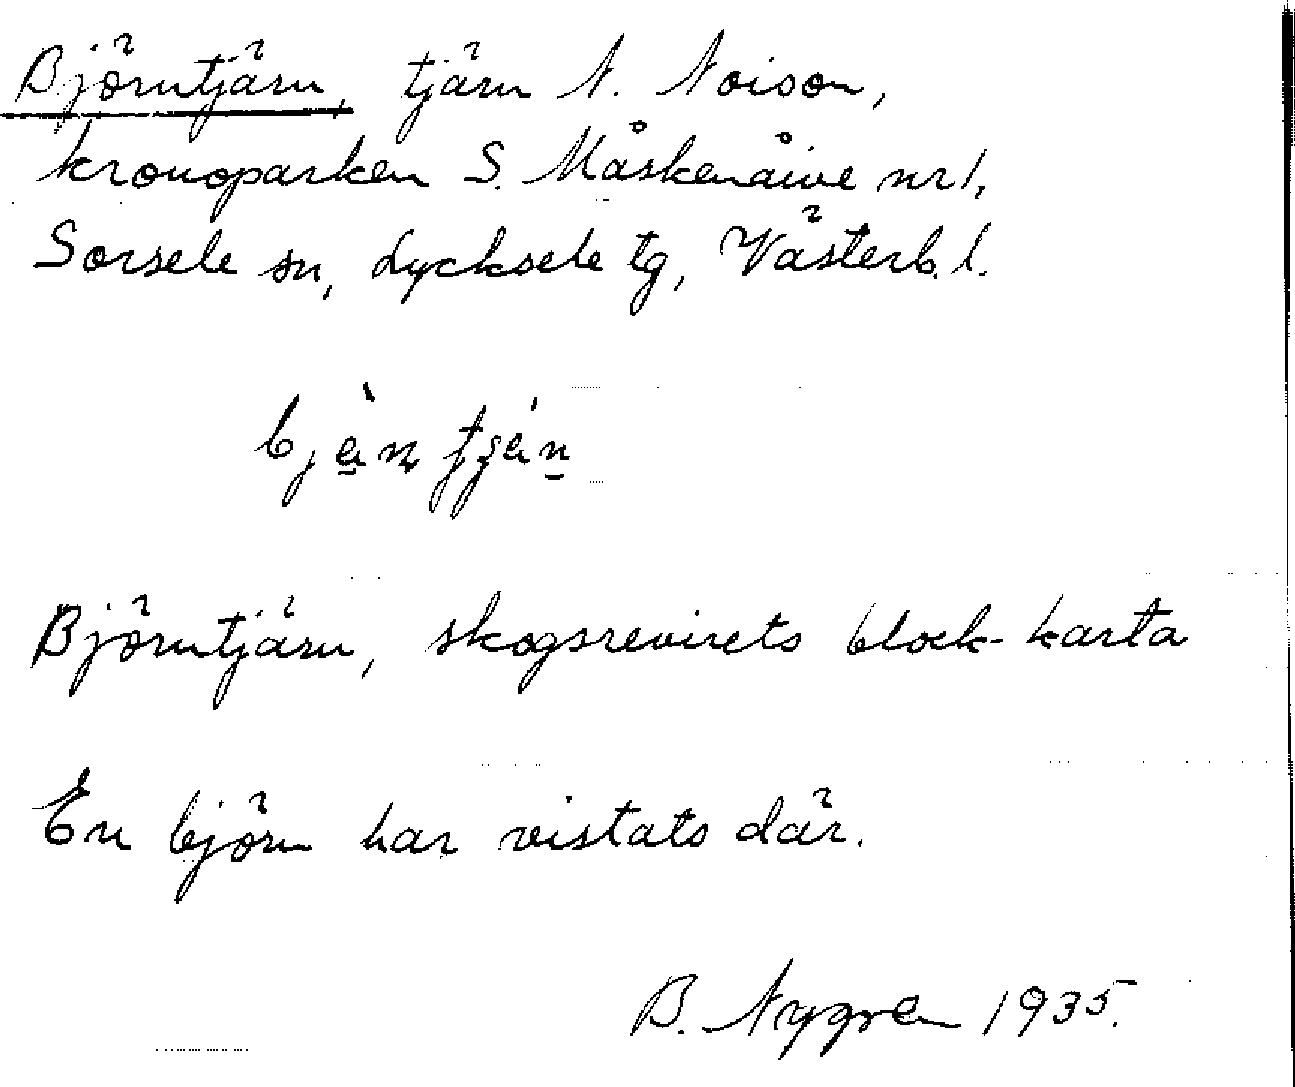 Björntjärn, tjärn N. Noison,
kronoparken S. Måskenåive nr 1,
Sorsele sn, Lycksele tg, Västerb. l.
Björntjärn, skogsrevirets block-karta
En björn har vistats där.
B. Nygren 1935.